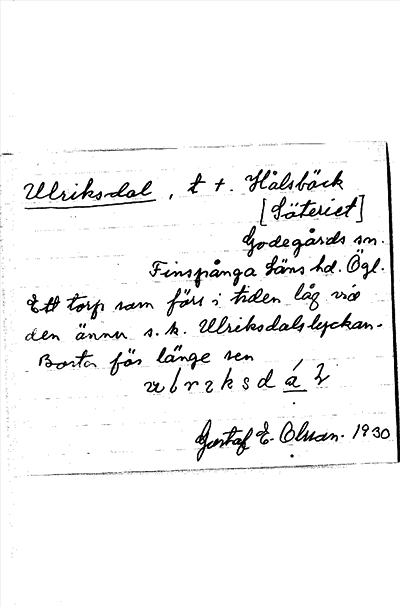 Ulriksdal, t †. Hålsbäck
[Säteriet]
Godegårds sn.
Finspånga läns hd. Ögl.
Ett torp som förr i tiden låg vid
den ännu s.k. Ulriksdalslyckan.
Borta för länge sen
Gustaf E. Olsson. 1930